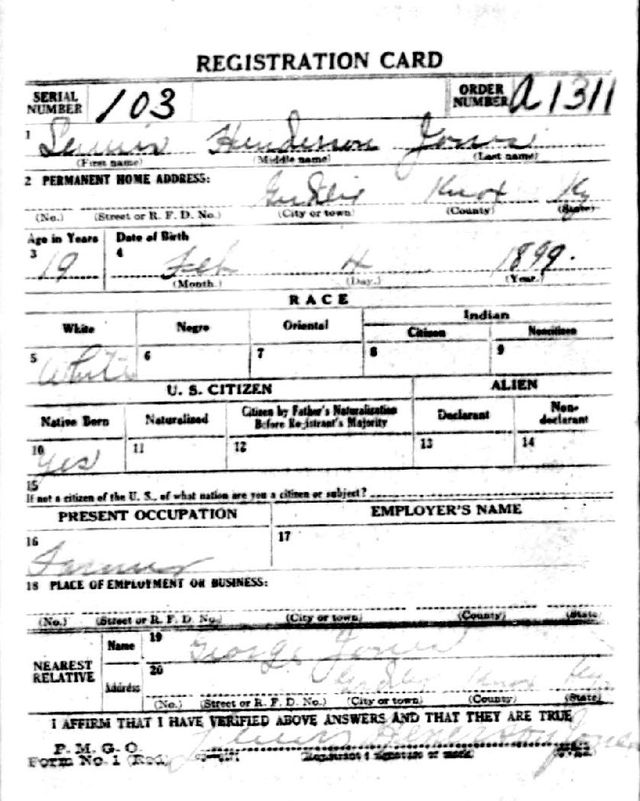 REGISTRATION CARD
SERIAL NUMBER 103 ORDER NUMBER A1311
1 Lewis Henderson Jones
(First name) (Middle name) (Last name)
2 PERMANENT HOME ADDRESS: Knox Ky
(No.) (Street or R. F. D. No.) (City or town) (County) (State)
Age in Years Date of Birth
3 19 4 Feb 4 1899.
(Month.) (Day.) (Year.)
RACE
White Negro Oriental Indian
Citizen Noncitizen
5 White 6 7 8 9
U. S. CITIZEN ALIEN
Native Born Naturalized Citizen by Father's Naturalization Before Registrant's Majority Declarant Non-declarant
10 Yes 11 12 13 14
15
If not a citizen of the U. S., of what nation are you a citizen or subject?
PRESENT OCCUPATION EMPLOYER'S NAME
16 Farmer 17
18 PLACE OF EMPLOYMENT OR BUSINESS:
(No.) (Street or R. F. D. No.) (City or town) (County) (State)
NEAREST RELATIVE Name 19 George Jones
Address 20 Knox Ky
(No.) (Street or R. F. D. No.) (City or town) (County) (State)
I AFFIRM THAT I HAVE VERIFIED ABOVE ANSWERS AND THAT THEY ARE TRUE
P. M. G. O.
Form No. 1 (Red) Lewis Henerson Jones
(Registrant's signature or mark)